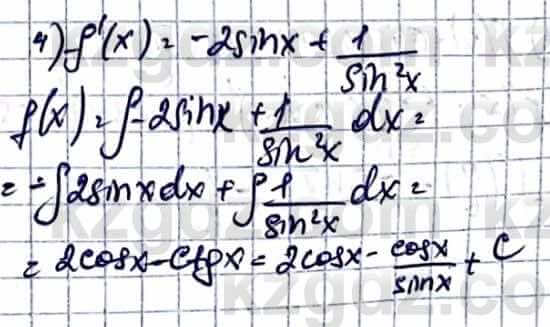 4) f'(x) = -2sinx + 1/sin²x
f(x) = ∫-2sinx + 1/sin²x dx =
= -∫2sinxdx + ∫1/sin²x dx =
= 2cosx - ctgx = 2cosx - cosx/sinx + C